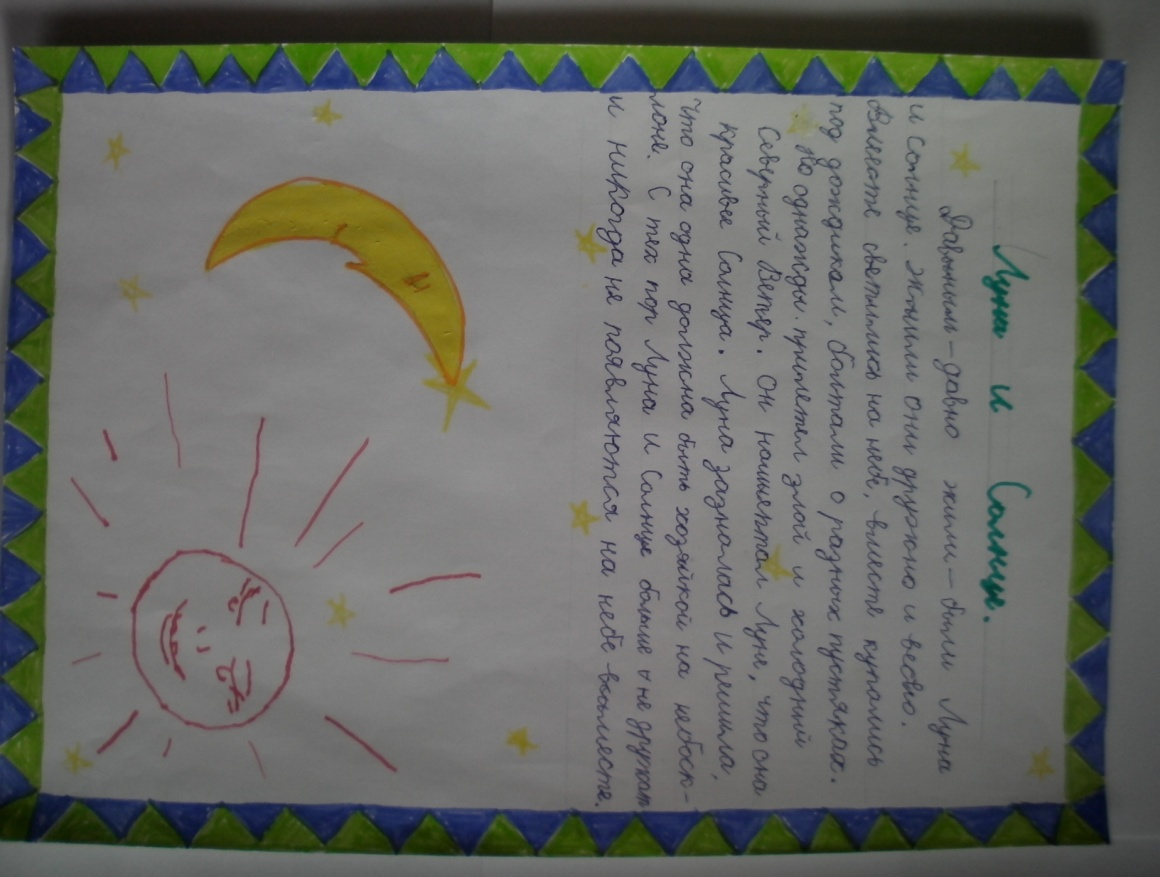 Луна и Солнце.
Давным-давно жили-были Луна
и Солнце. Жили они дружно и весело.
Вместе светились на небе, вместе купались
под дождиком, болтали о разных пустяках.
Но однажды прилетел злой и холодный
Северный Ветер. Он нашептал Луне, что она
красивее Солнца. Луна зазналась и решила,
что она одна должна быть хозяйкой на небоск-
лоне. С тех пор Луна и Солнце больше не дружат
и никогда не появляются на небе вместе.